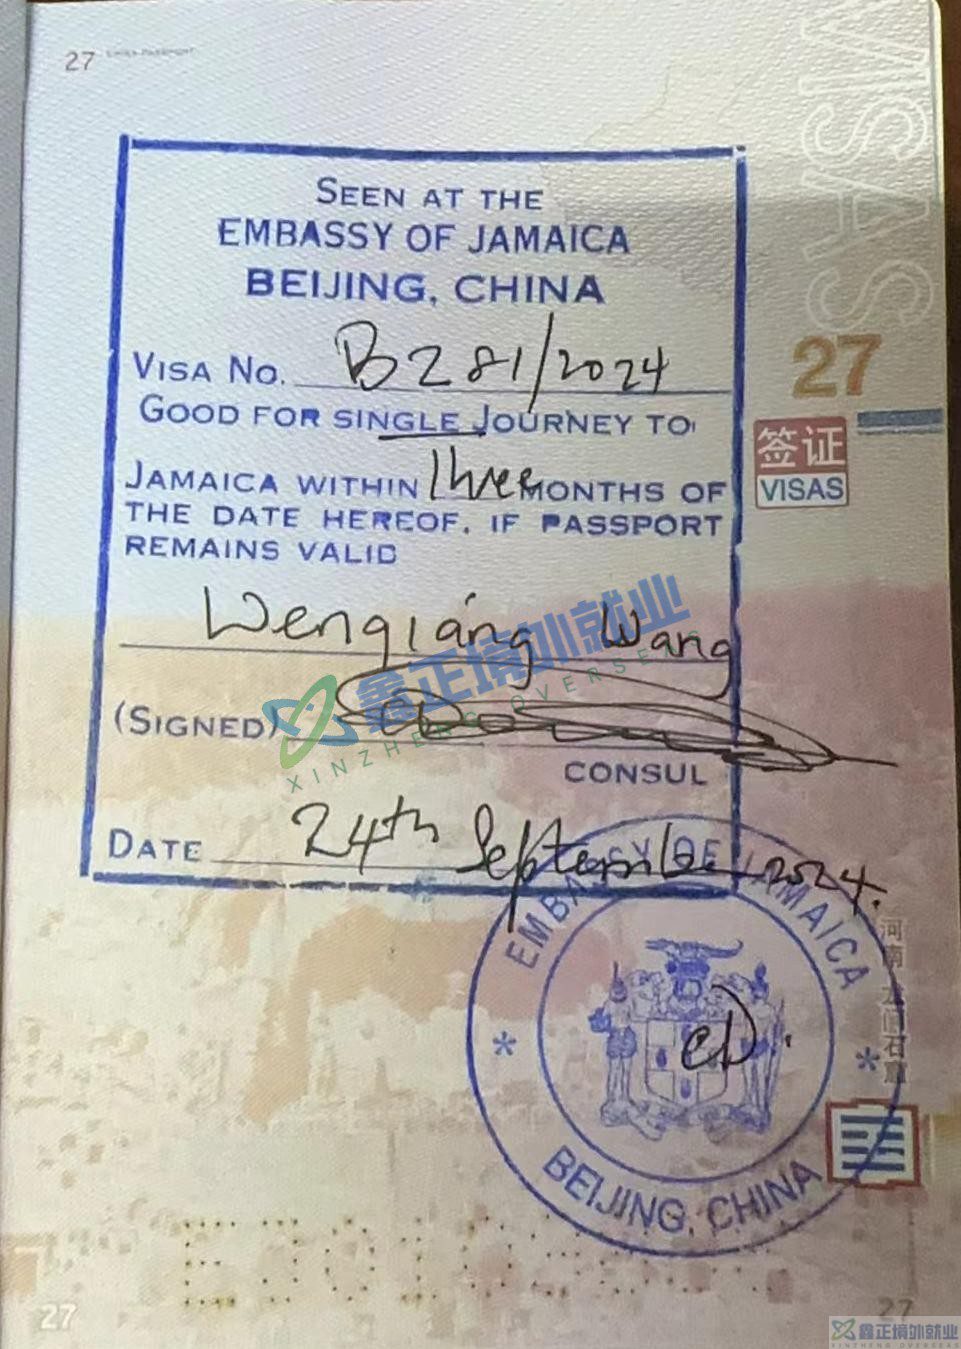 27 CHINA PASSPORT
VISAS
SEEN AT THE
EMBASSY OF JAMAICA
BEIJING, CHINA
VISA NO. B281/2024
GOOD FOR SINGLE JOURNEY TO
JAMAICA WITHIN three MONTHS OF
THE DATE HEREOF, IF PASSPORT
REMAINS VALID
Wenqiang Wang
(SIGNED)
CONSUL
DATE 24th September 2024.
27
签证
VISAS
鑫正境外就业
XINZHENG OVERSEAS
EMBASSY OF JAMAICA
CD.
BEIJING, CHINA
河南 龙门石窟
27
27
鑫正境外就业
XINZHENG OVERSEAS